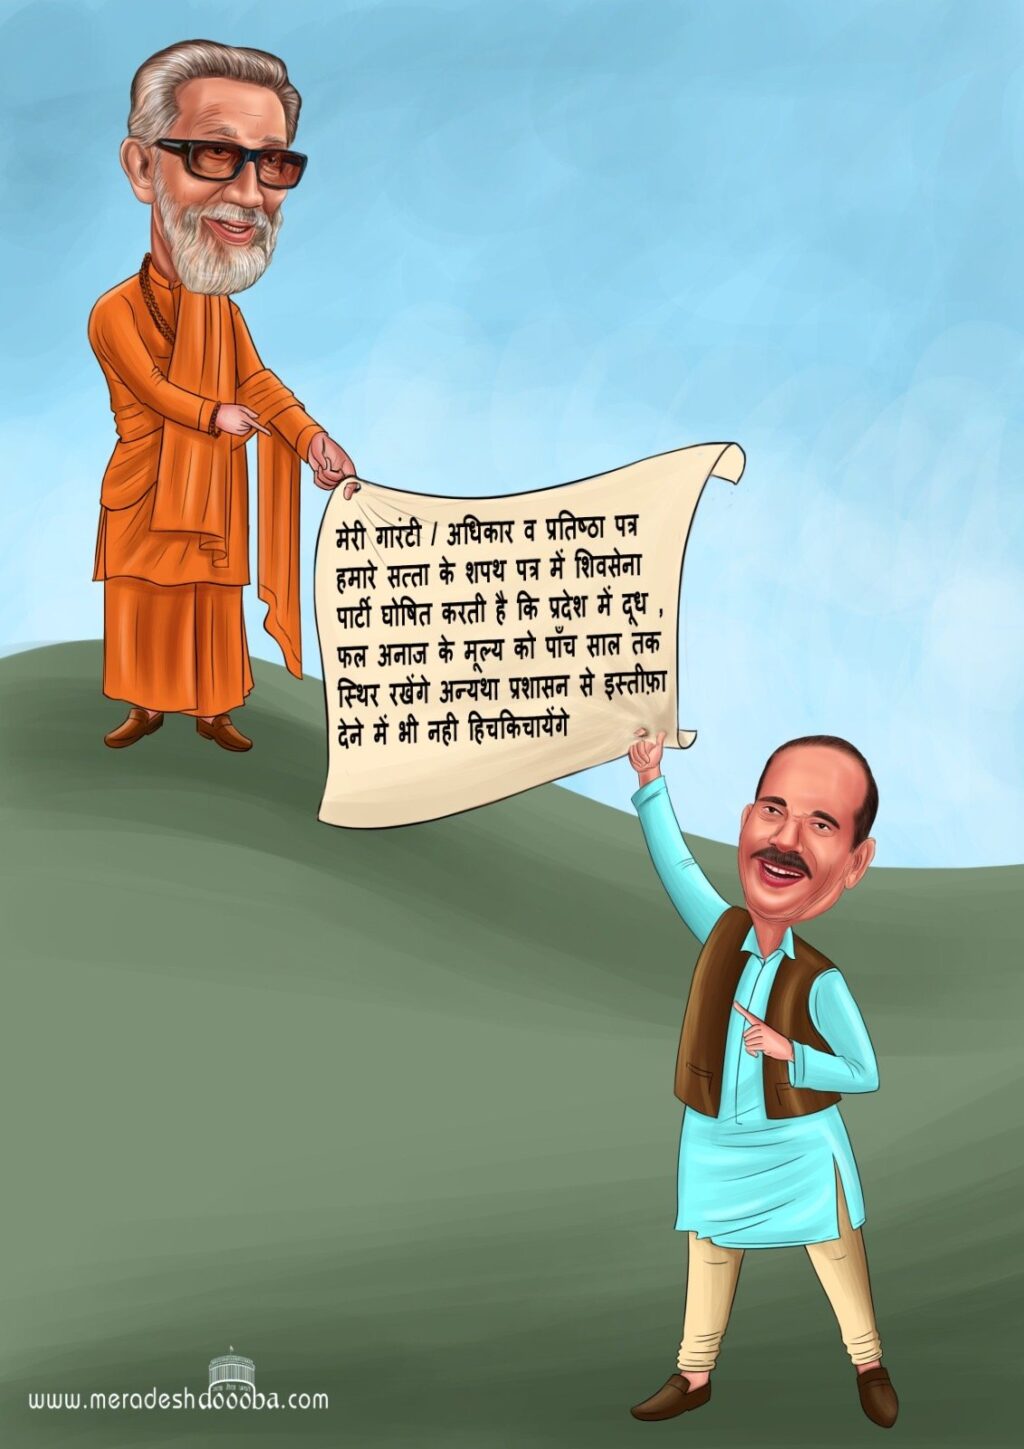 मेरी गारंटी / अधिकार व प्रतिष्ठा पत्र
हमारे सत्ता के शपथ पत्र में शिवसेना
पार्टी घोषित करती है कि प्रदेश में दूध ,
फल अनाज के मूल्य को पाँच साल तक
स्थिर रखेंगे अन्यथा प्रशासन से इस्तीफ़ा
देने में भी नही हिचकिचायेंगे
www.meradeshdoooba.com